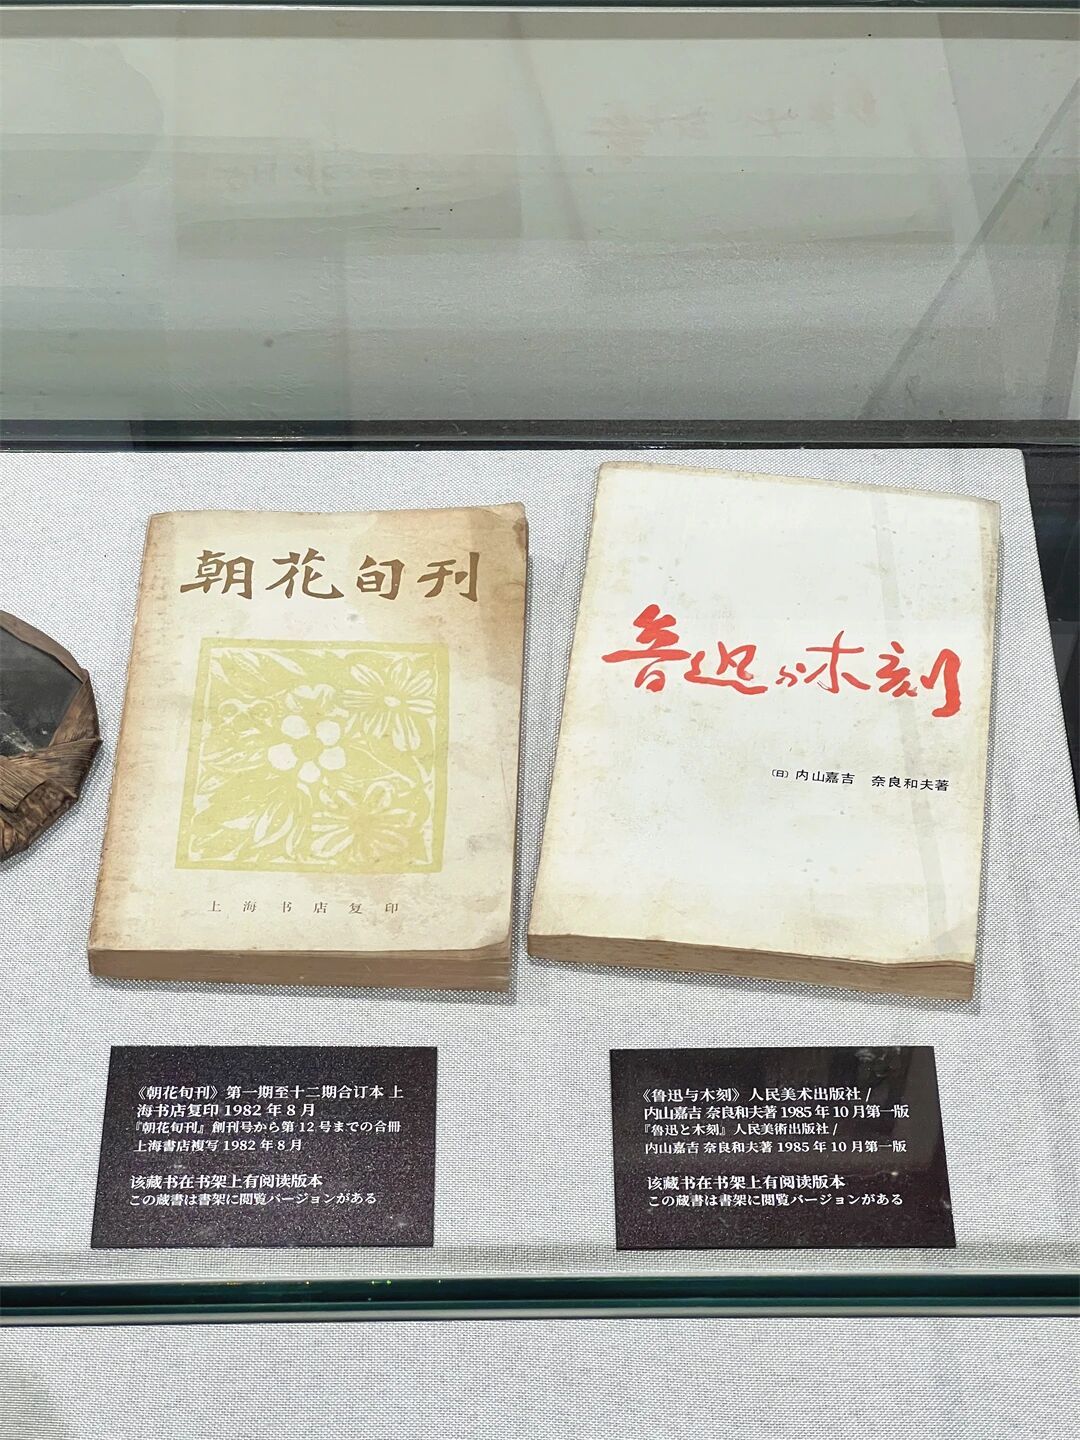 朝花旬刊
上海书店复印
鲁迅与木刻
〔日〕内山嘉吉 奈良和夫著
《朝花旬刊》第一期至十二期合订本 上
海书店复印 1982 年 8 月
『朝花旬刊』創刊号から第 12 号までの合冊
上海書店複写 1982 年 8 月
该藏书在书架上有阅读版本
この蔵書は書架に閲覧バージョンがある
《鲁迅与木刻》人民美术出版社 /
内山嘉吉 奈良和夫著 1985 年 10 月第一版
『魯迅と木刻』人民美術出版社 /
内山嘉吉 奈良和夫著 1985 年 10 月第一版
该藏书在书架上有阅读版本
この蔵書は書架に閲覧バージョンがある